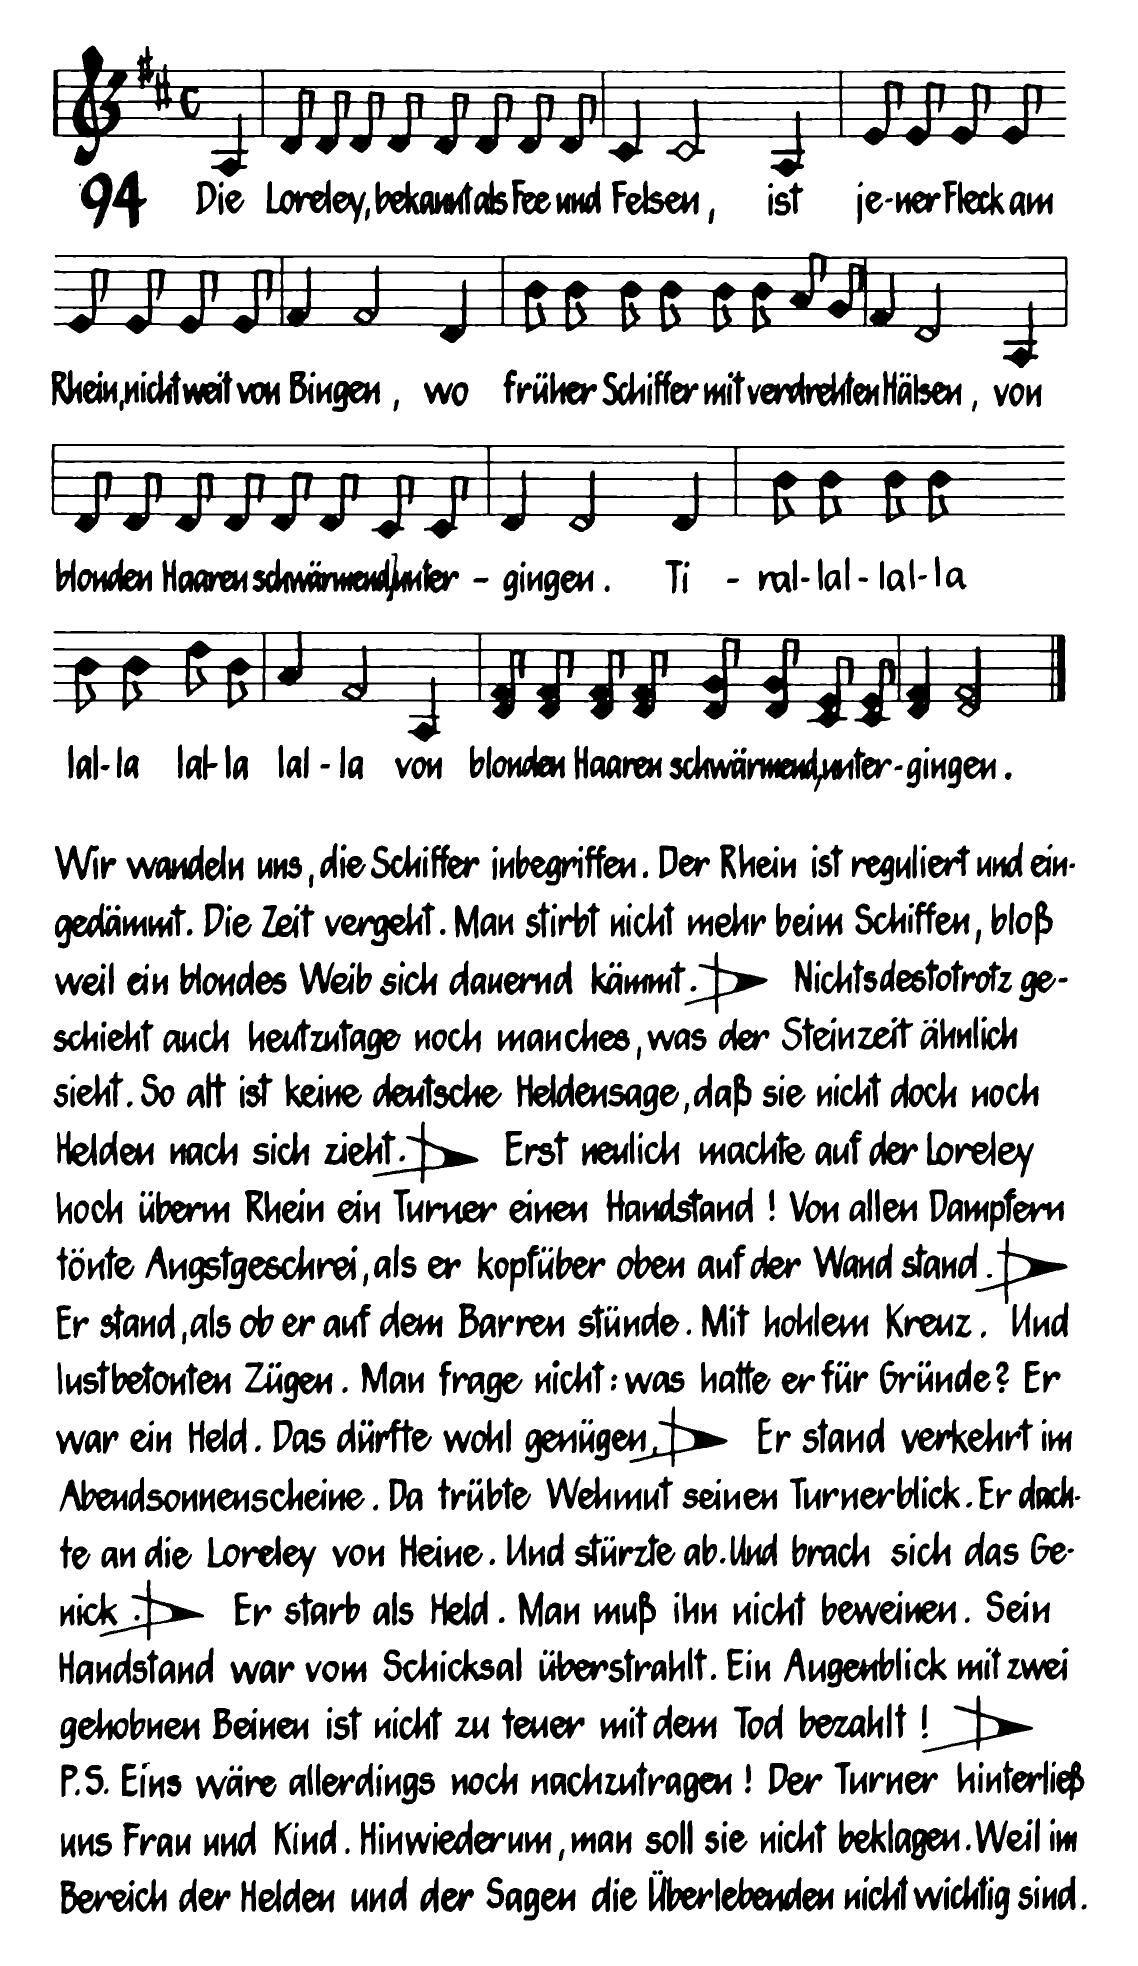 94 Die Loreley, bekannt als Fee und Felsen, ist je-ner Fleck am
Rhein, nicht weit von Bingen, wo früher Schiffer mit verdrehten Hälsen, von
blonden Haaren schwärmend, unter - gingen. Ti - ral-lal-lal-la
lal-la lal-la lal-la von blonden Haaren schwärmend, unter-gingen.
Wir wandeln uns, die Schiffer inbegriffen. Der Rhein ist reguliert und ein-
gedämmt. Die Zeit vergeht. Man stirbt nicht mehr beim Schiffen, bloß
weil ein blondes Weib sich dauernd kämmt. Nichtsdestotrotz ge-
schieht auch heutzutage noch manches, was der Steinzeit ähnlich
sieht. So alt ist keine deutsche Heldensage, daß sie nicht doch noch
Helden nach sich zieht. Erst neulich machte auf der Loreley
hoch überm Rhein ein Turner einen Handstand! Von allen Dampfern
tönte Angstgeschrei, als er kopfüber oben auf der Wand stand.
Er stand, als ob er auf dem Barren stünde. Mit hohlem Kreuz. Und
lustbetonten Zügen. Man frage nicht: was hatte er für Gründe? Er
war ein Held. Das dürfte wohl genügen. Er stand verkehrt im
Abendsonnenscheine. Da trübte Wehmut seinen Turnerblick. Er dach-
te an die Loreley von Heine. Und stürzte ab. Und brach sich das Ge-
nick. Er starb als Held. Man muß ihn nicht beweinen. Sein
Handstand war vom Schicksal überstrahlt. Ein Augenblick mit zwei
gehobnen Beinen ist nicht zu teuer mit dem Tod bezahlt!
P.S. Eins wäre allerdings noch nachzutragen! Der Turner hinterließ
uns Frau und Kind. Hinwiederum, man soll sie nicht beklagen. Weil im
Bereich der Helden und der Sagen die Überlebenden nicht wichtig sind.